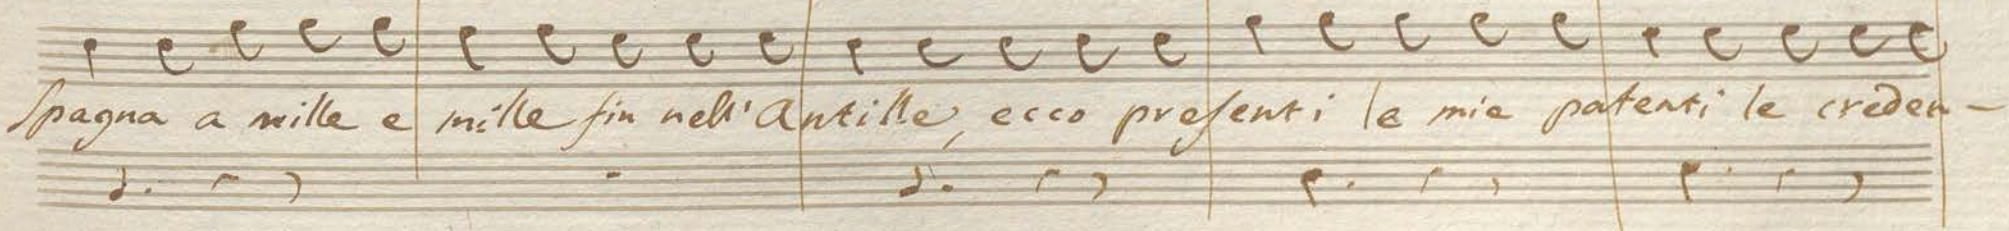 Spagna a mille e mille fin nell'Antille, ecco presenti le mie patenti le creden-